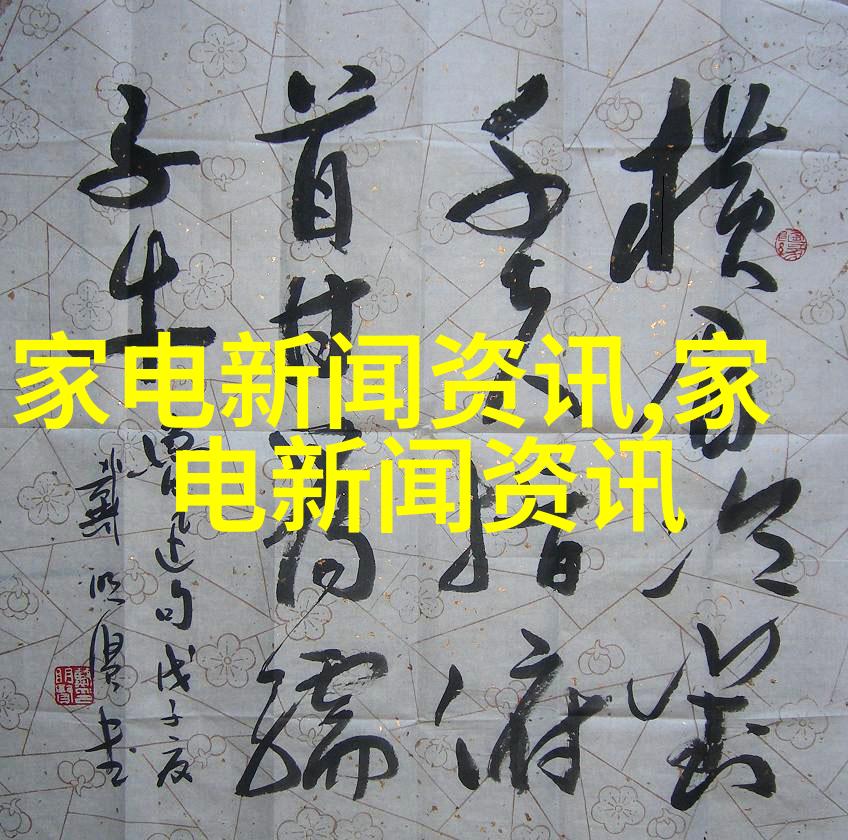 家电新闻资讯,家
电新闻资讯
横眉冷對
千夫指俯
首甘为孺
子牛
鲁迅句戊子夏
戴明賢书